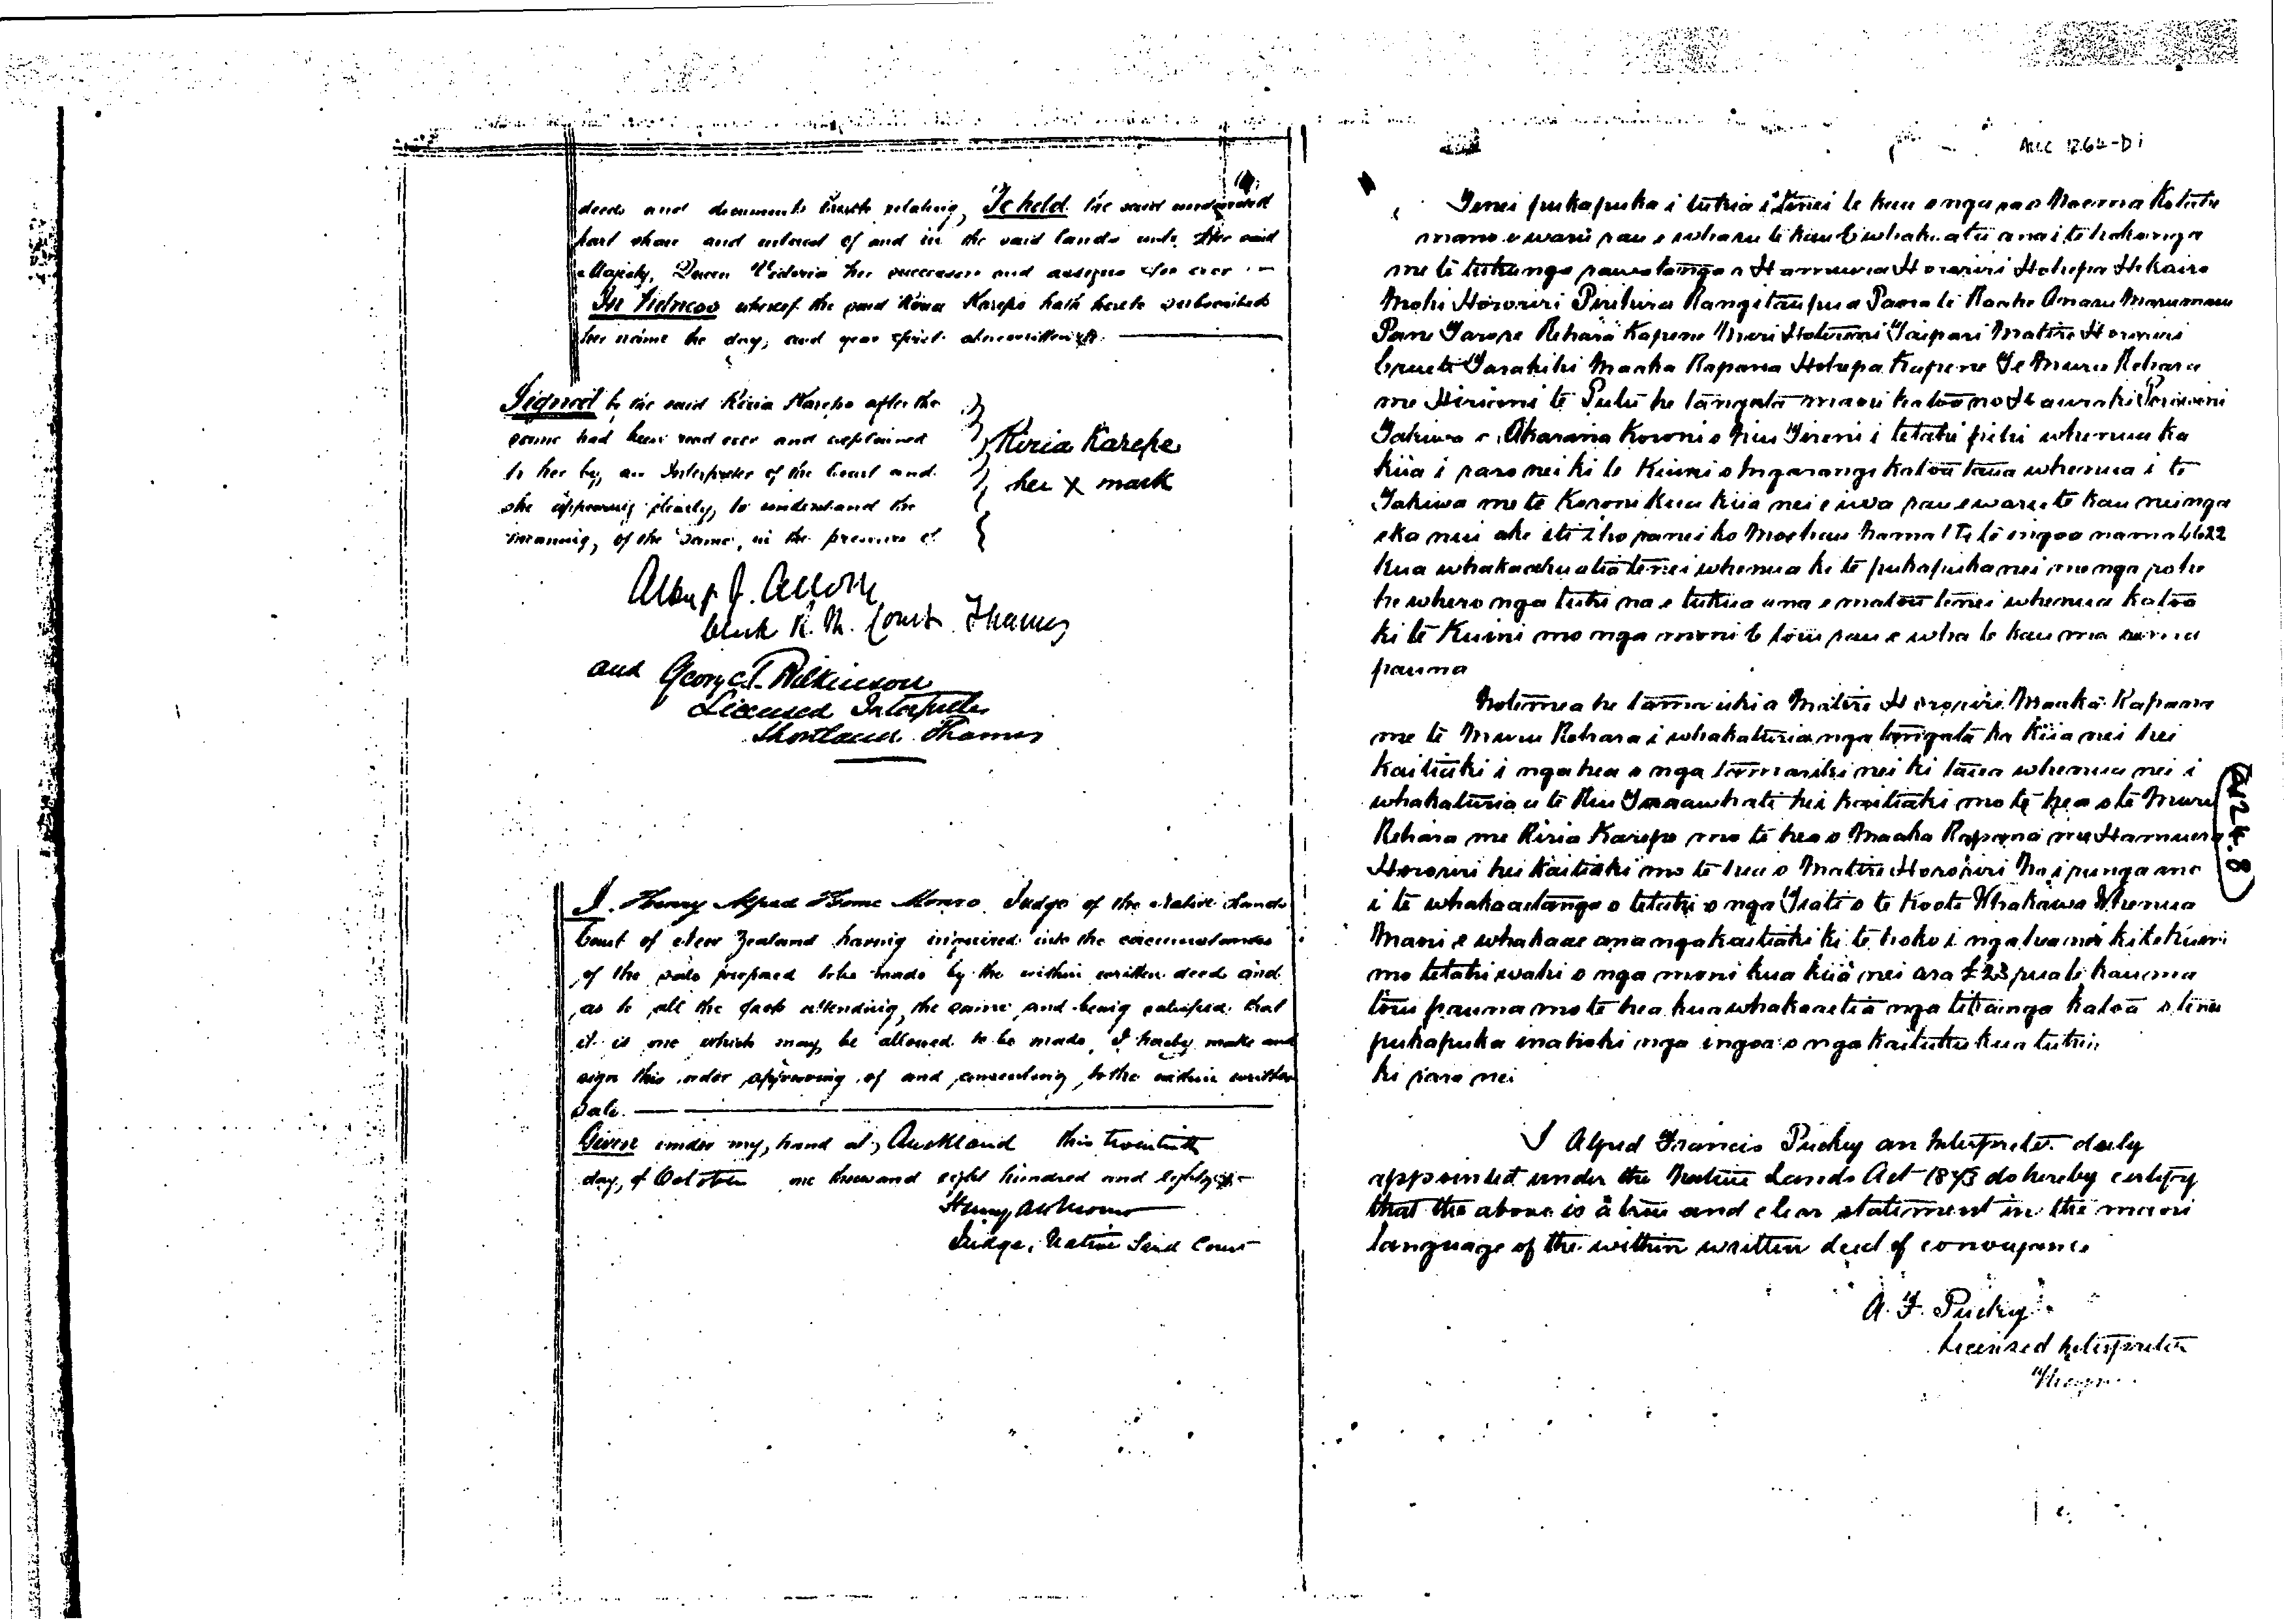 deeds and documents thereto relating, To hold the said undivided
part share and interest of and in the said lands unto Her said
Majesty, Queen Victoria her successors and assigns for ever
In Witness whereof the said Riria Karepe hath hereto subscribed
her name the day, and year first abovewritten.
Signed by the said Riria Karepe after the
same had been read over and explained
to her by, an Interpreter of the Court and
she appearing clearly, to understand the
meaning, of the same, in the presence of
Riria Karepe
her X mark
Albert J. Allom
Clerk R. M. Court Thames
and George T. Wilkinson
Licensed Interpreter
Shortland Thames
I. Henry Alfred Home Monro Judge of the Native Lands
Court of New Zealand having inquired into the circumstances
of the sale proposed to be made by the within written deed and
as to all the facts attending, the same, and being satisfied that
it is one which may, be allowed to be made, I hereby make and
sign this order approving of and consenting, to the within written
sale.
Given under my, hand at, Auckland this twentieth
day, of October one thousand eight hundred and eighty
Henry A H Monro
Judge, Native Land Court
ACC 1264-D1
Tenei pukapuka i tuhia i tenei te kau o nga ra o Noema Kotahi
mano e waru rau e whitu te kau e whakaatu ana i te hokonga
me te tukunga rawatanga a Hamuera Horoiri Hohepa
Mohi Hororiri Piritira Rangitaupua Paora te
Pane Tarere Rehara Kapene Meri Taipari Matire Hororiri
Tarakihi Maaka Rapana Hohepa Kapene Te Muru Rehara
me Hirawini te Putu he tangata maori katoa no Hauraki
Takiwa o Akarana Koroni o Niu Tireni i tetahi pihi whenua ka
kiia i raro nei ki te Kuini o Ingarangi katoa taua whenua i te
Takiwa me te Koroni kua kiia nei e iwa rau e waru te kau nei nga
eka nui ake iti iho ranei ko Moehau Nama 1 Te te ingoa nama 4622
kua whakaahuatia tenei whenua ki te pukapuka nei me nga rohe
he whero nga tuhi na e tukua ana e matou tenei whenua katoa
ki te Kuini mo nga moni e toru rau e wha te kau ma
pauna
Notemea he tamariki a Matire Hororiri Maaka Rapana
me te Muru Rehara i whakaturia nga tangata ka kiia nei hei
kaitiaki i nga hea o nga tamariki nei ki taua whenua nei i
whakaturia a te kaitiaki mo te hea o te Muru
Rehara me Riria Karepe mo te hea o Maaka Rapana me Hamuera
Hororiri hei kaitiaki mo te hea o Matire Hororiri Na i runga ano
i te whakaaetanga o tetahi o nga Tiati o te Kooti Whakawa Whenua
Maori e whakaae ana nga kaitiaki ki te hoko i nga hea nei ki te Kuini
mo tetahi wahi o nga moni kua kiia nei ara £23 rua te kau ma
toru pauna mo te hea kua whakaaetia nga tikanga katoa o tenei
pukapuka inahoki nga ingoa o nga kaituku kua tuhia
ki raro nei
I Alfred Francis Puckey an Interpreter duly
appointed under the Native Lands Act 1873 do hereby certify
that the above is a true and clear statement in the maori
language of the within written deed of conveyance
A. F. Puckey
Licensed Interpreter